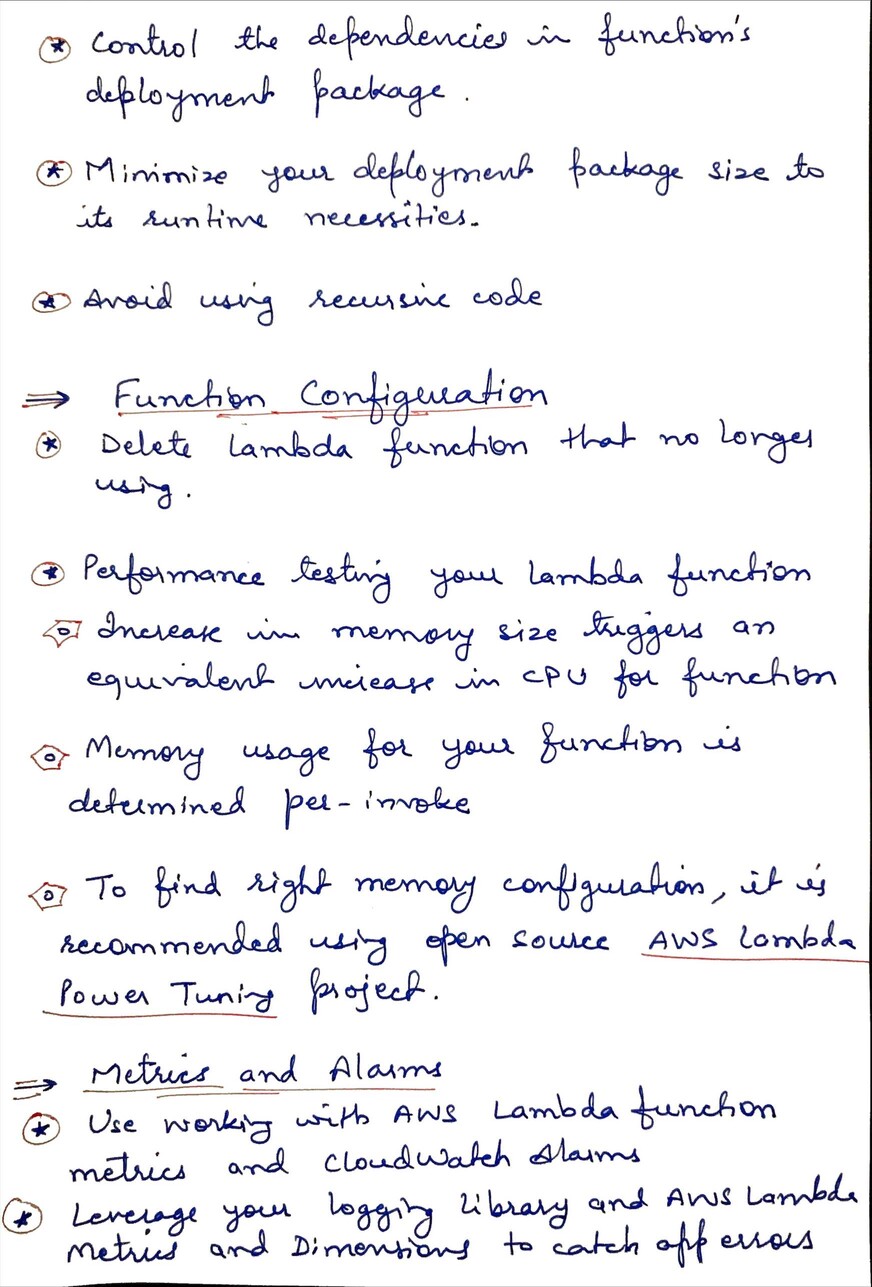 Control the dependencies in function's
deployment package.
Minimize your deployment package size to
its runtime necessities.
Avoid using recursive code
⇒ Function Configuration
Delete Lambda function that no longer
using.
Performance testing your Lambda function
Increase in memory size triggers an
equivalent increase in CPU for function
Memory usage for your function is
determined per-invoke
To find right memory configuration, it is
recommended using open source AWS Lambda
Power Tuning project.
⇒ Metrics and Alarms
Use working with AWS Lambda function
metrics and CloudWatch Alarms
Leverage your logging library and AWS Lambda
Metrics and Dimensions to catch app errors